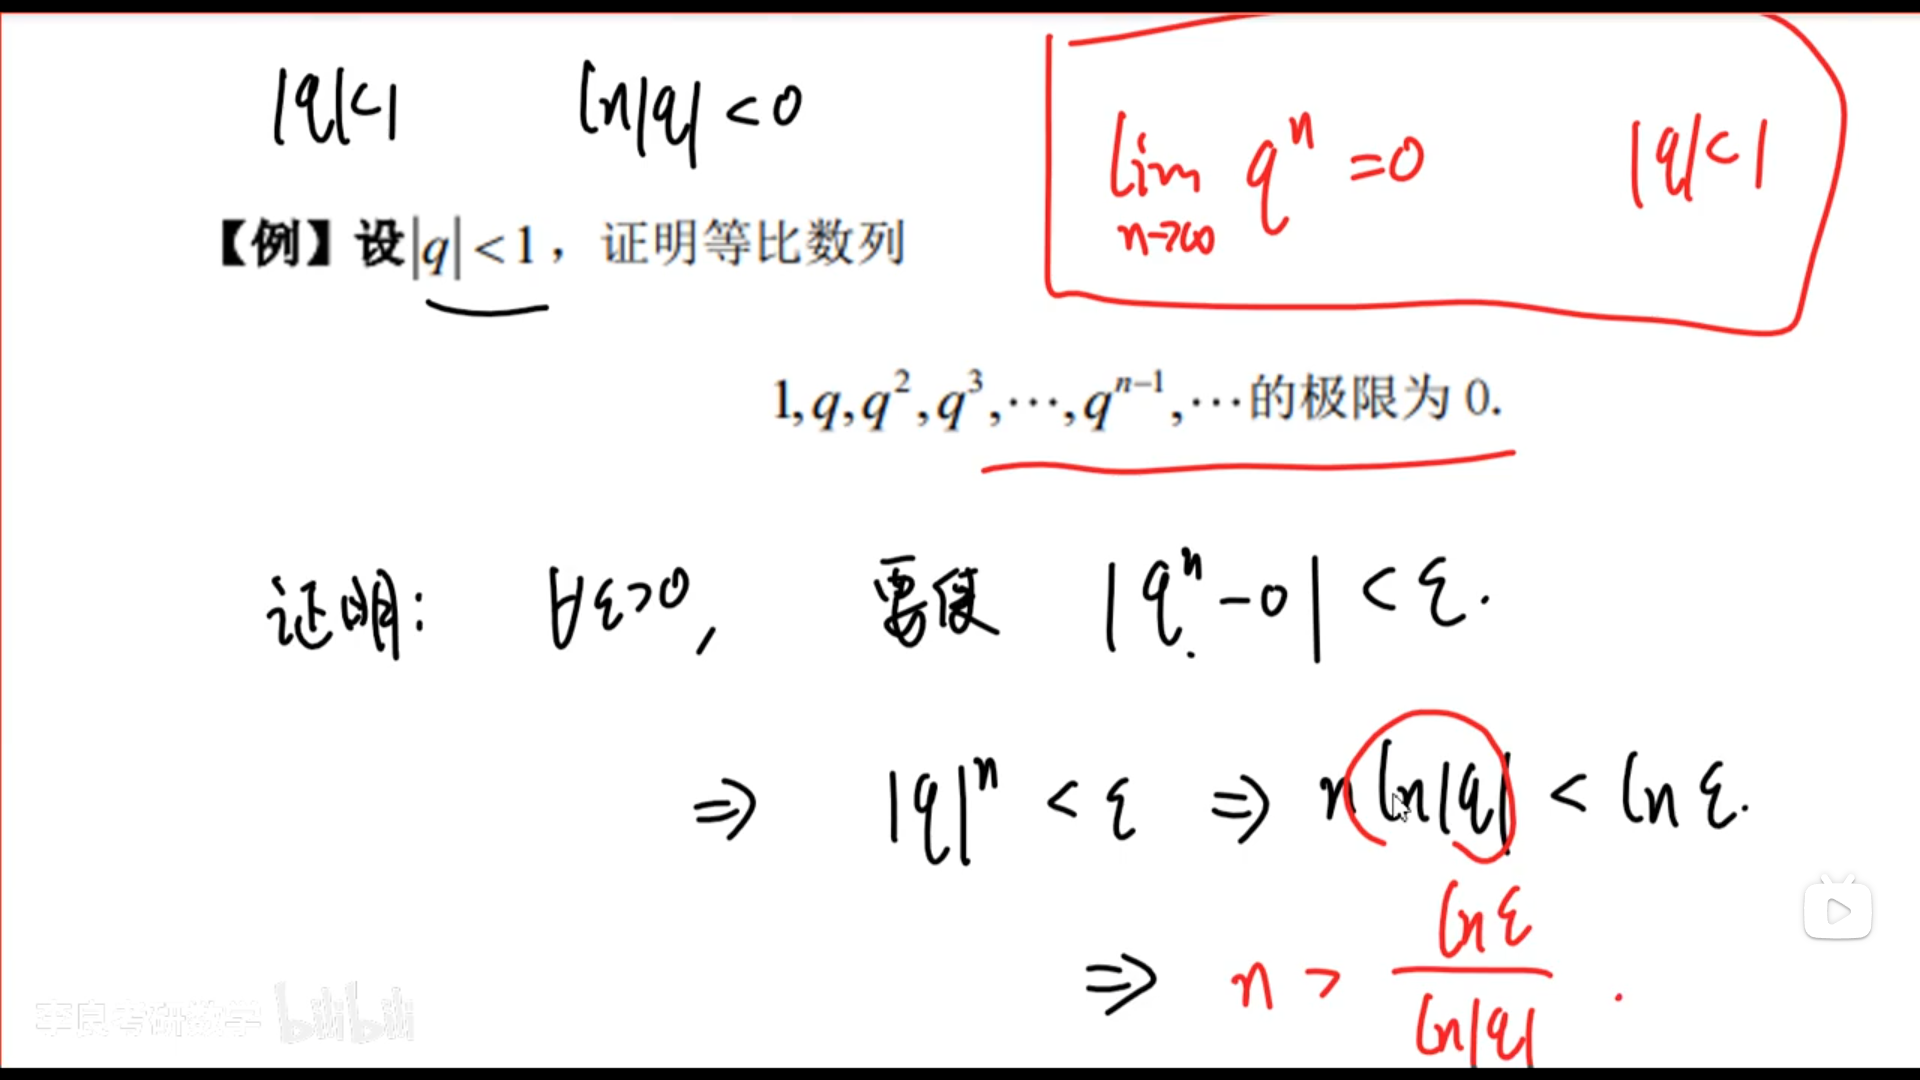 |q|<1 ln|q| < 0
lim q^n = 0 |q|<1
n→∞
【例】设|q|<1，证明等比数列
1,q,q²,q³,⋯,q^{n−1},⋯的极限为 0.
证明： ∀ε>0, 要使 |q^n − 0| < ε.
⇒ |q|^n < ε ⇒ n ln|q| < ln ε.
⇒ n > ln ε / ln|q| .
李良考研数学 bilibili